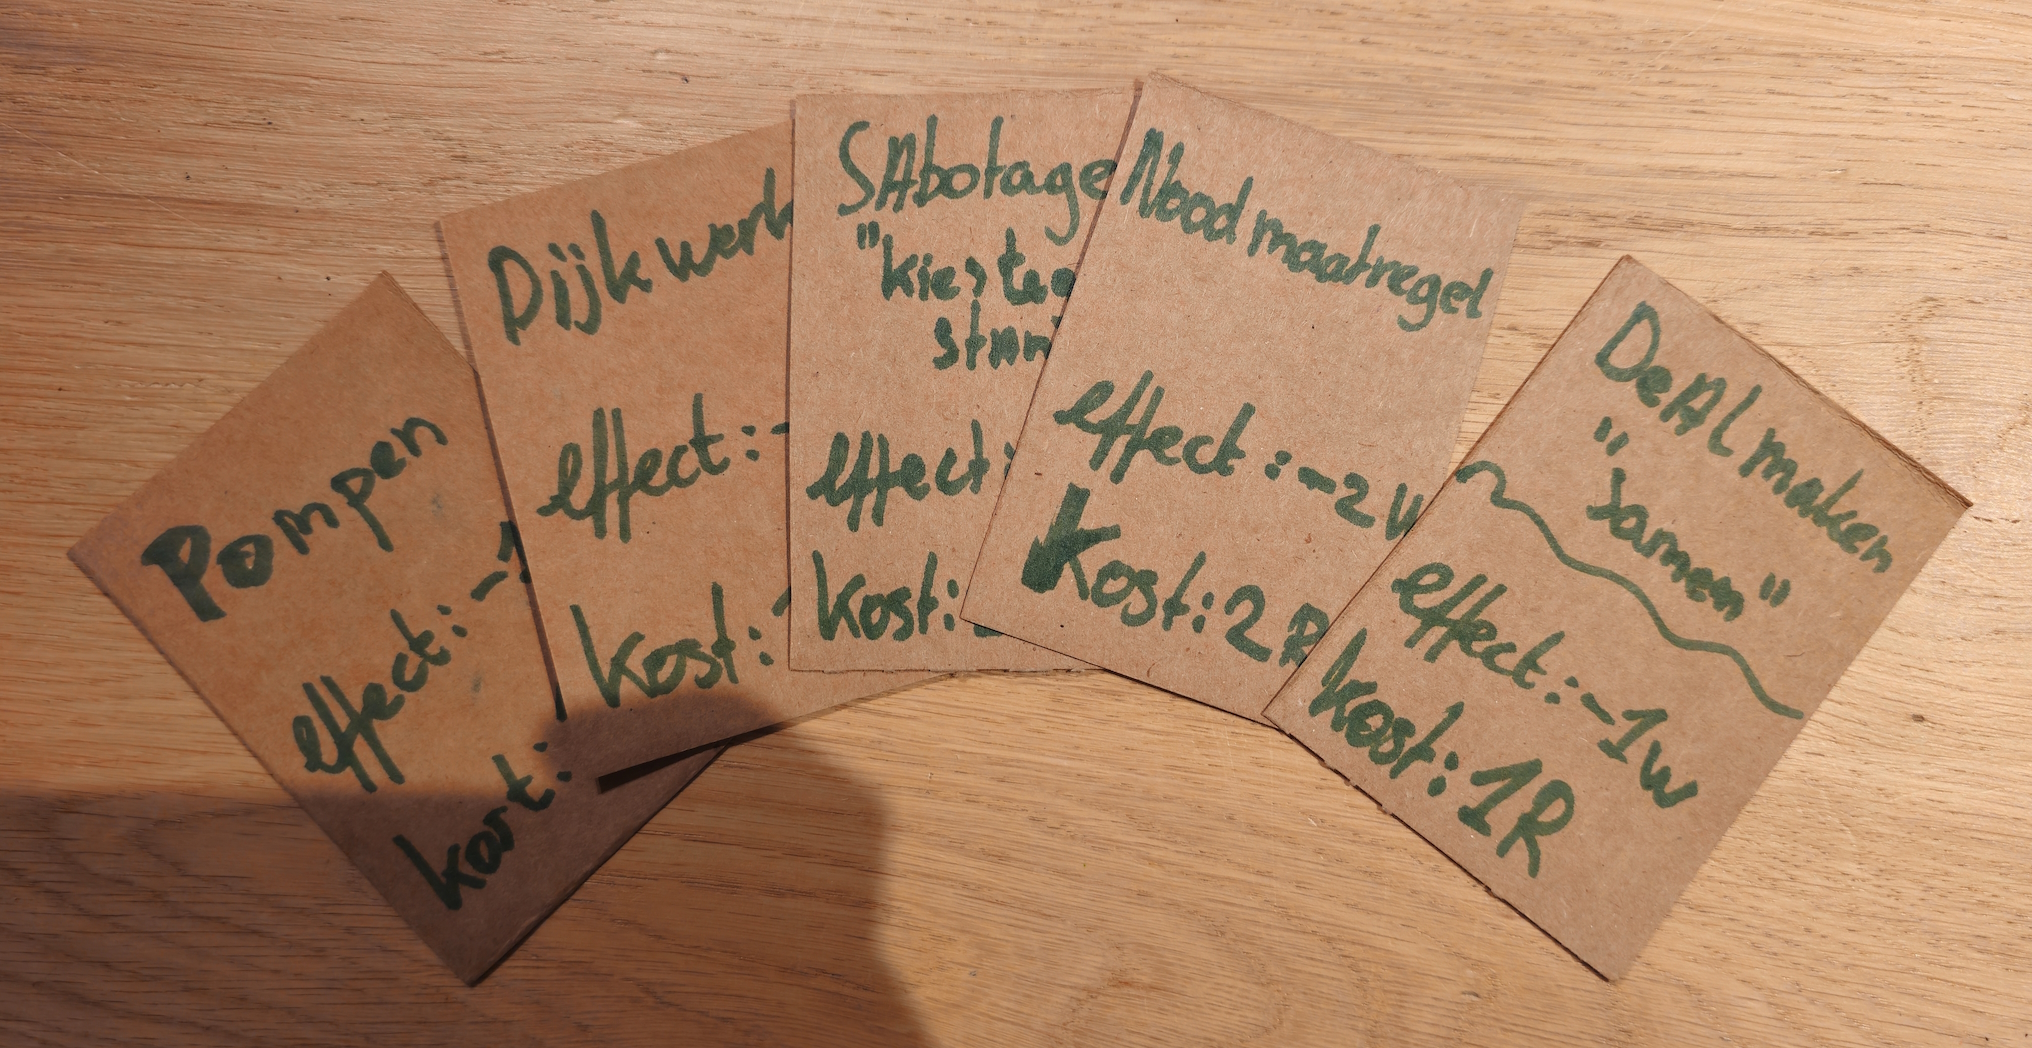 Pompen
effect: -1
kost:
Dijkwerk
effect: -
kost:
SAbotage
"kies
effect:
kost:
Noodmaatregel
effect: -2 W
Kost: 2 R
DeAl maken
"Samen"
effect: -1 w
kost: 1R